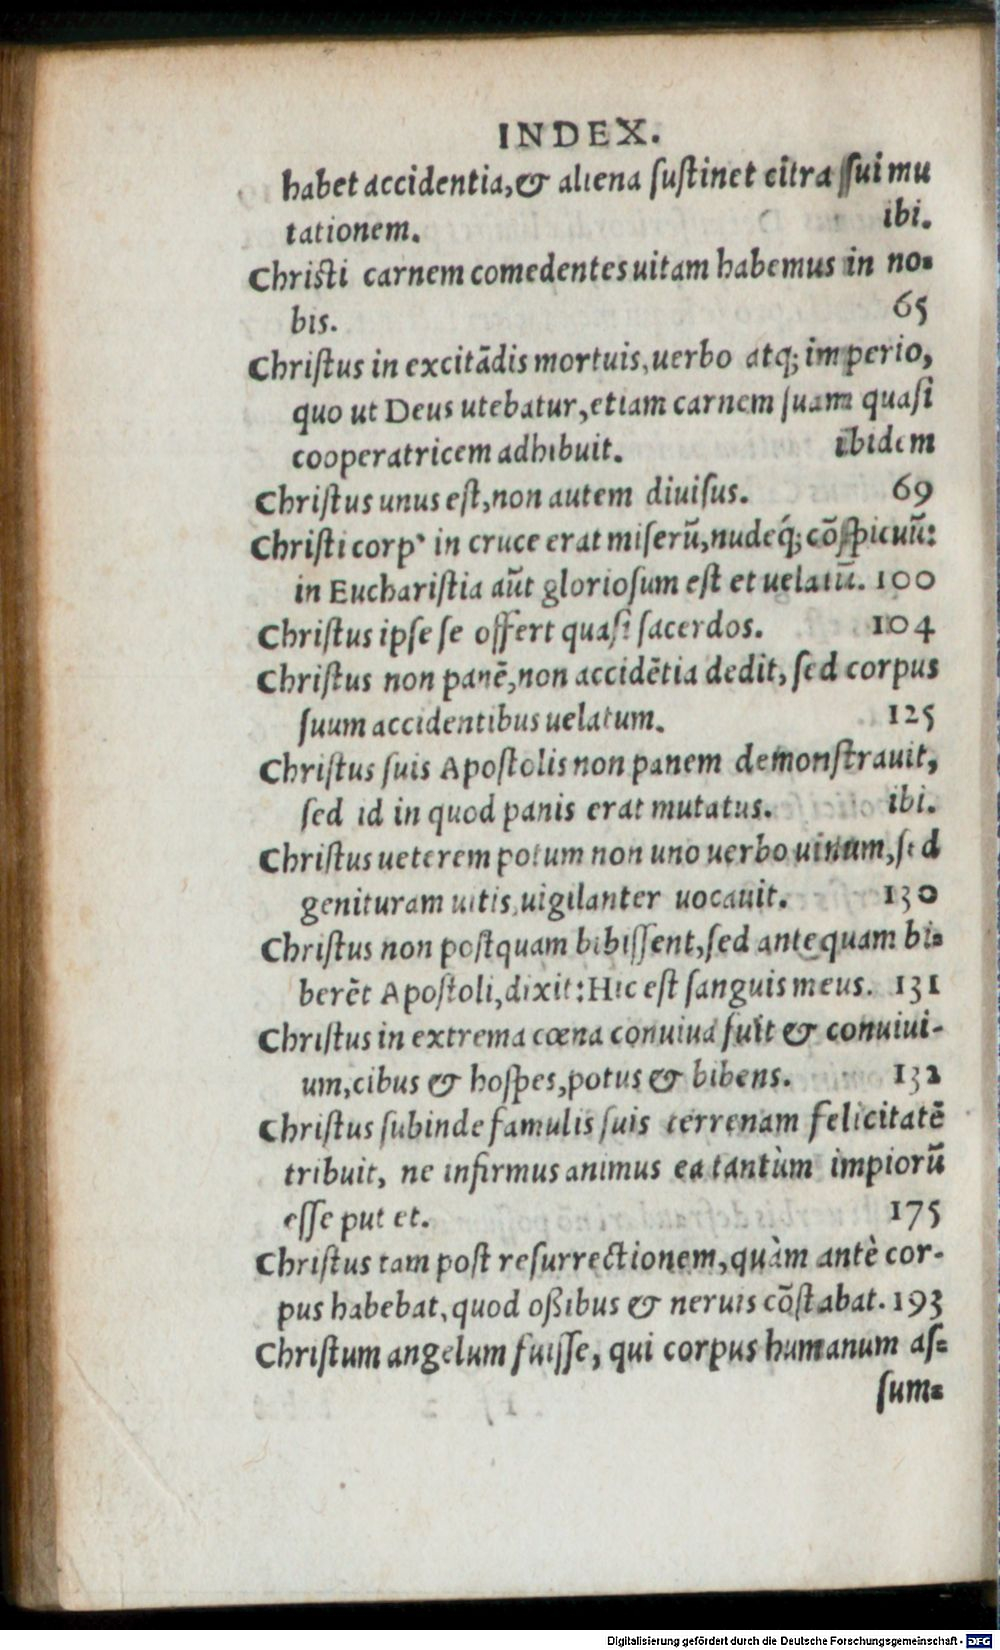 INDEX.
habet accidentia, & aliena ſuſtinet citra ſui mu
tationem. ibi.
Chriſti carnem comedentes uitam habemus in no-
bis. 65
Chriſtus in excitādis mortuis, uerbo atq; imperio,
quo ut Deus utebatur, etiam carnem ſuam quaſi
cooperatricem adhibuit. ibidem
Chriſtus unus eſt, non autem diuiſus. 69
Chriſti corpꝰ in cruce erat miſerū, nudeq́; cōſpicuū:
in Euchariſtia aūt glorioſum eſt et uelatū. 100
Chriſtus ipſe ſe offert quaſi ſacerdos. 104
Chriſtus non panē, non accidētia dedit, ſed corpus
ſuum accidentibus uelatum. 125
Chriſtus ſuis Apoſtolis non panem demonſtrauit,
ſed id in quod panis erat mutatus. ibi.
Chriſtus ueterem potum non uno uerbo uinum, ſed
genituram uitis, uigilanter uocauit. 130
Chriſtus non poſtquam bibiſſent, ſed antequam bi-
berēt Apoſtoli, dixit: Hic eſt ſanguis meus. 131
Chriſtus in extrema cœna conuiua fuit & conuiui-
um, cibus & hoſpes, potus & bibens. 132
Chriſtus ſubinde famulis ſuis terrenam felicitatē
tribuit, ne infirmus animus ea tantùm impiorū
eſſe putet. 175
Chriſtus tam poſt reſurrectionem, quàm antè cor-
pus habebat, quod oßibus & neruis cōſtabat. 193
Chriſtum angelum fuiſſe, qui corpus humanum aſ-
ſum-
Digitalisierung gefördert durch die Deutsche Forschungsgemeinschaft - DFG